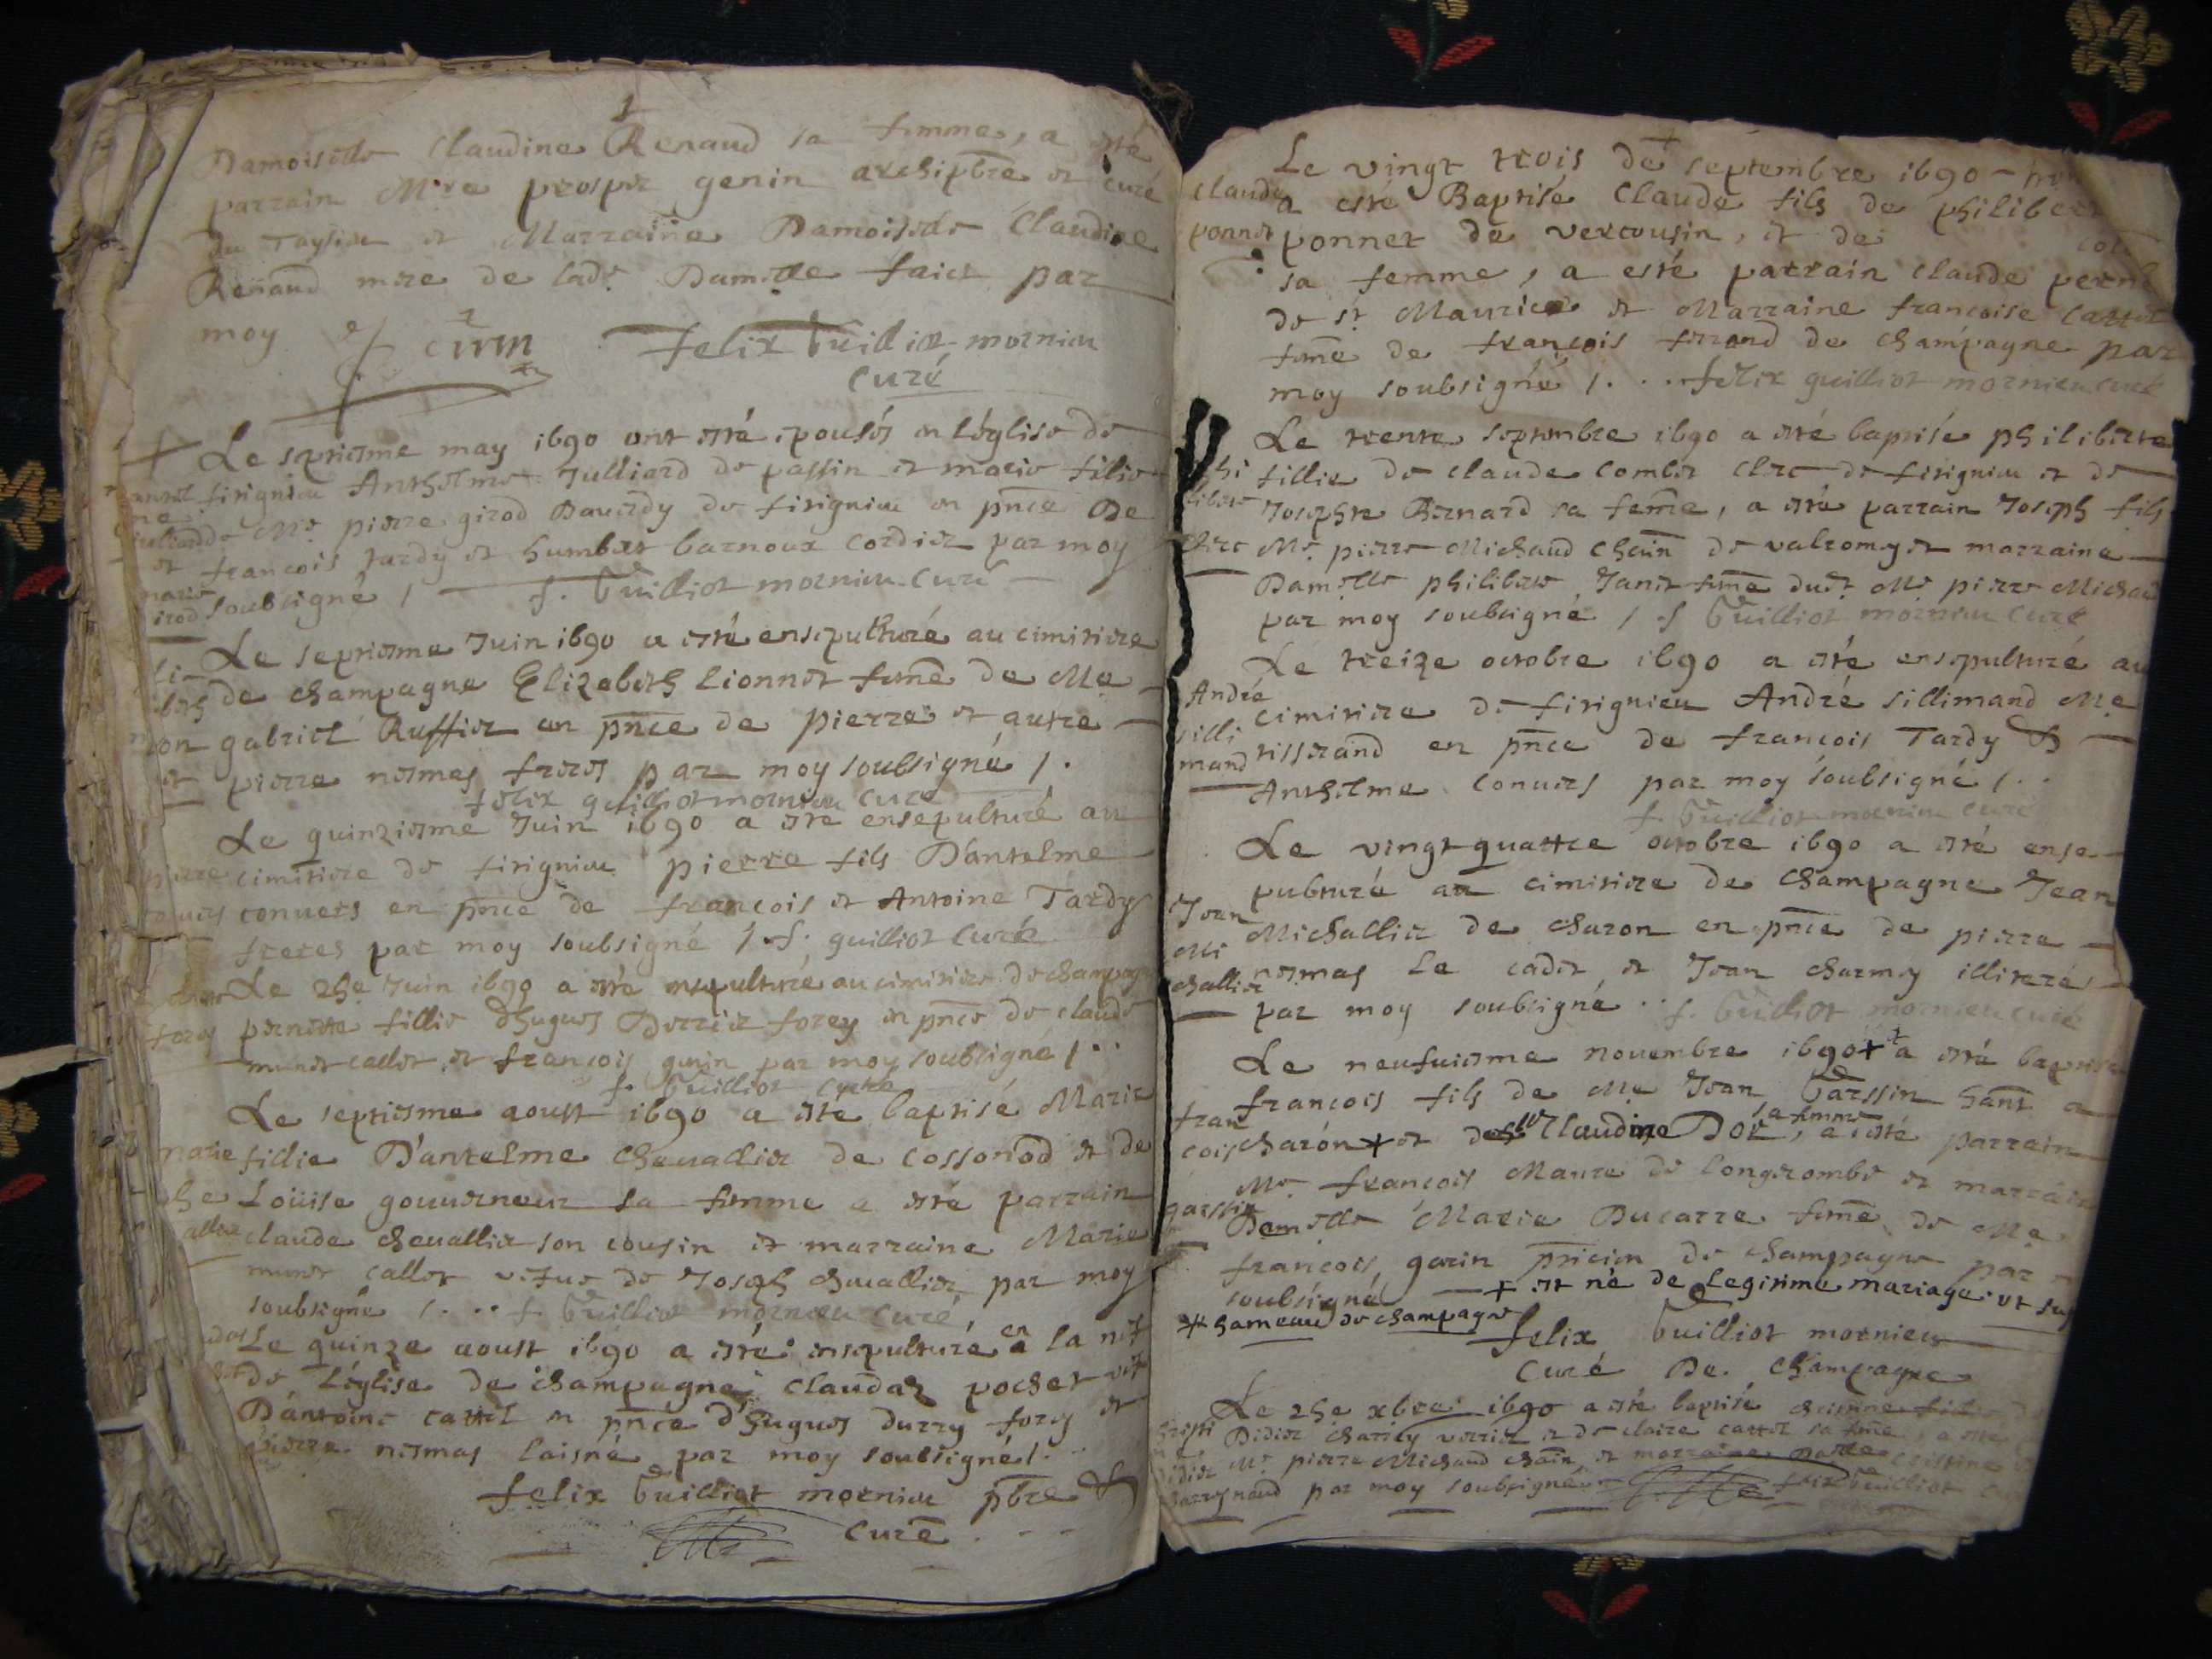 Damoiselle Claudine Renaud sa femme, a esté
parrain Mre prosper genin archipbre et curé
du et Marraine Damoiselle Claudine
Renaud mere de lade Damelle faict par
moy
felix Guilliot mornieu
curé
Le septiesme may 1690 ont esté epousés en l'église de
firignieu Anthelme Julliard de passin et marie fillie
de Me pierre girod Bauerdy de firignieu en pnce De
et francois tardy et humbert barnoux cordier par moy
soubsigné / f. Guilliot mornieu curé
Le septiesme Juin 1690 a esté ensepulturé au cimitiere
de champagne Elizabeth Lionnet feme de Me
gabriel Ruffier en pnce de pierre et autre
et pierre nesmes freres par moy soubsigné /.
felix guilliot mornieu curé
Le quinziesme Juin 1690 a esté ensepulturé au
pierre cimitiere de firignieu pierre fils D'antelme
conuers conuers en pnce de francois et Antoine Tardy
freres par moy soubsigné /. f. guilliot curé
Le 25e Juin 1690 a esté ensepulturé au cimitiere de champagne
forey pernette fillie d'hugues forey en pnce de claude
munet callet et francois guin par moy soubsigné /..
f. Guilliot curé
Le septiesme aoust 1690 a esté baptisé Marie
marie fillie D'antelme Cheuallier de cossonod et de
che Loüise gouuerneur sa femme a esté parrain
allier claude cheuallier son cousin et marraine Marie
munet callet vefue de Joseph cheuallier par moy
soubsigné /... f. Guilliot mornieu curé
Le quinze aoust 1690 a esté ensepulturé en la nef
de L'église de champagne claudaz pochet
D'antoine cattel en pnce d'hugues durry forey et
pierre nesmes laisné par moy soubsigné /..
felix Guilliot mornieu pbre &
curé
Le vingt trois de septembre 1690
claude a esté Baptisé Claude fils de philibert
ponnet ponnet de vercousin, et de
sa femme, a esté parrain claude
de st Maurice et Marraine francoise cattel
feme de francois ferrand de champagne par
moy soubsigné /... felix guilliot mornieu curé
Le trente septembre 1690 a esté baptisé philiberte
phi fillie de claude combet clerc de firignieu et de
liberte Josephte Bernard sa feme, a esté parrain Joseph fils
clerc Me pierre Michaud chain de valromey et marraine
Damelle philiberte Janet feme dudt Me pierre Michaud
par moy soubsigné / f Guilliot mornieu curé
Le treize octobre 1690 a esté ensepulturé au
André
cimitiere de firignieu André sillimand Me
silli
mand tisserand en pnce de francois Tardy &
Anthelme conuers par moy soubsigné /..
f. Guilliot mornieu curé
Le vingt quattre octobre 1690 a esté ense-
pulturé au cimitiere de champagne Jean
Jean
Mi Michallier de charon en pnce de pierre
challier nesmes le cadet et Jean charmey illiterés
par moy soubsigné .. f. Guilliot mornieu curé
Le neufuiesme nouembre 1690 + a esté baptisé
francois fils de Me Jean Garssin hant a
fran
cois charon * et de Claudine Dor sa femme, a esté parrain
Me francois Maure de longecombe et marraine
garssin
Damelle Marie Ducarre feme de Me
francois garin pnicien de champagne par
soubsigné + et né de legitime mariage ut sup
* hameau de champagne
felix Guilliot mornieu
Curé De Champagne
Le 25e xbre 1690 a esté baptisé
Didier charvey verrier et de claire cattel sa feme, a esté
Me pierre Michaud chain, et marraine cristine
par moy soubsigné felix Guilliot